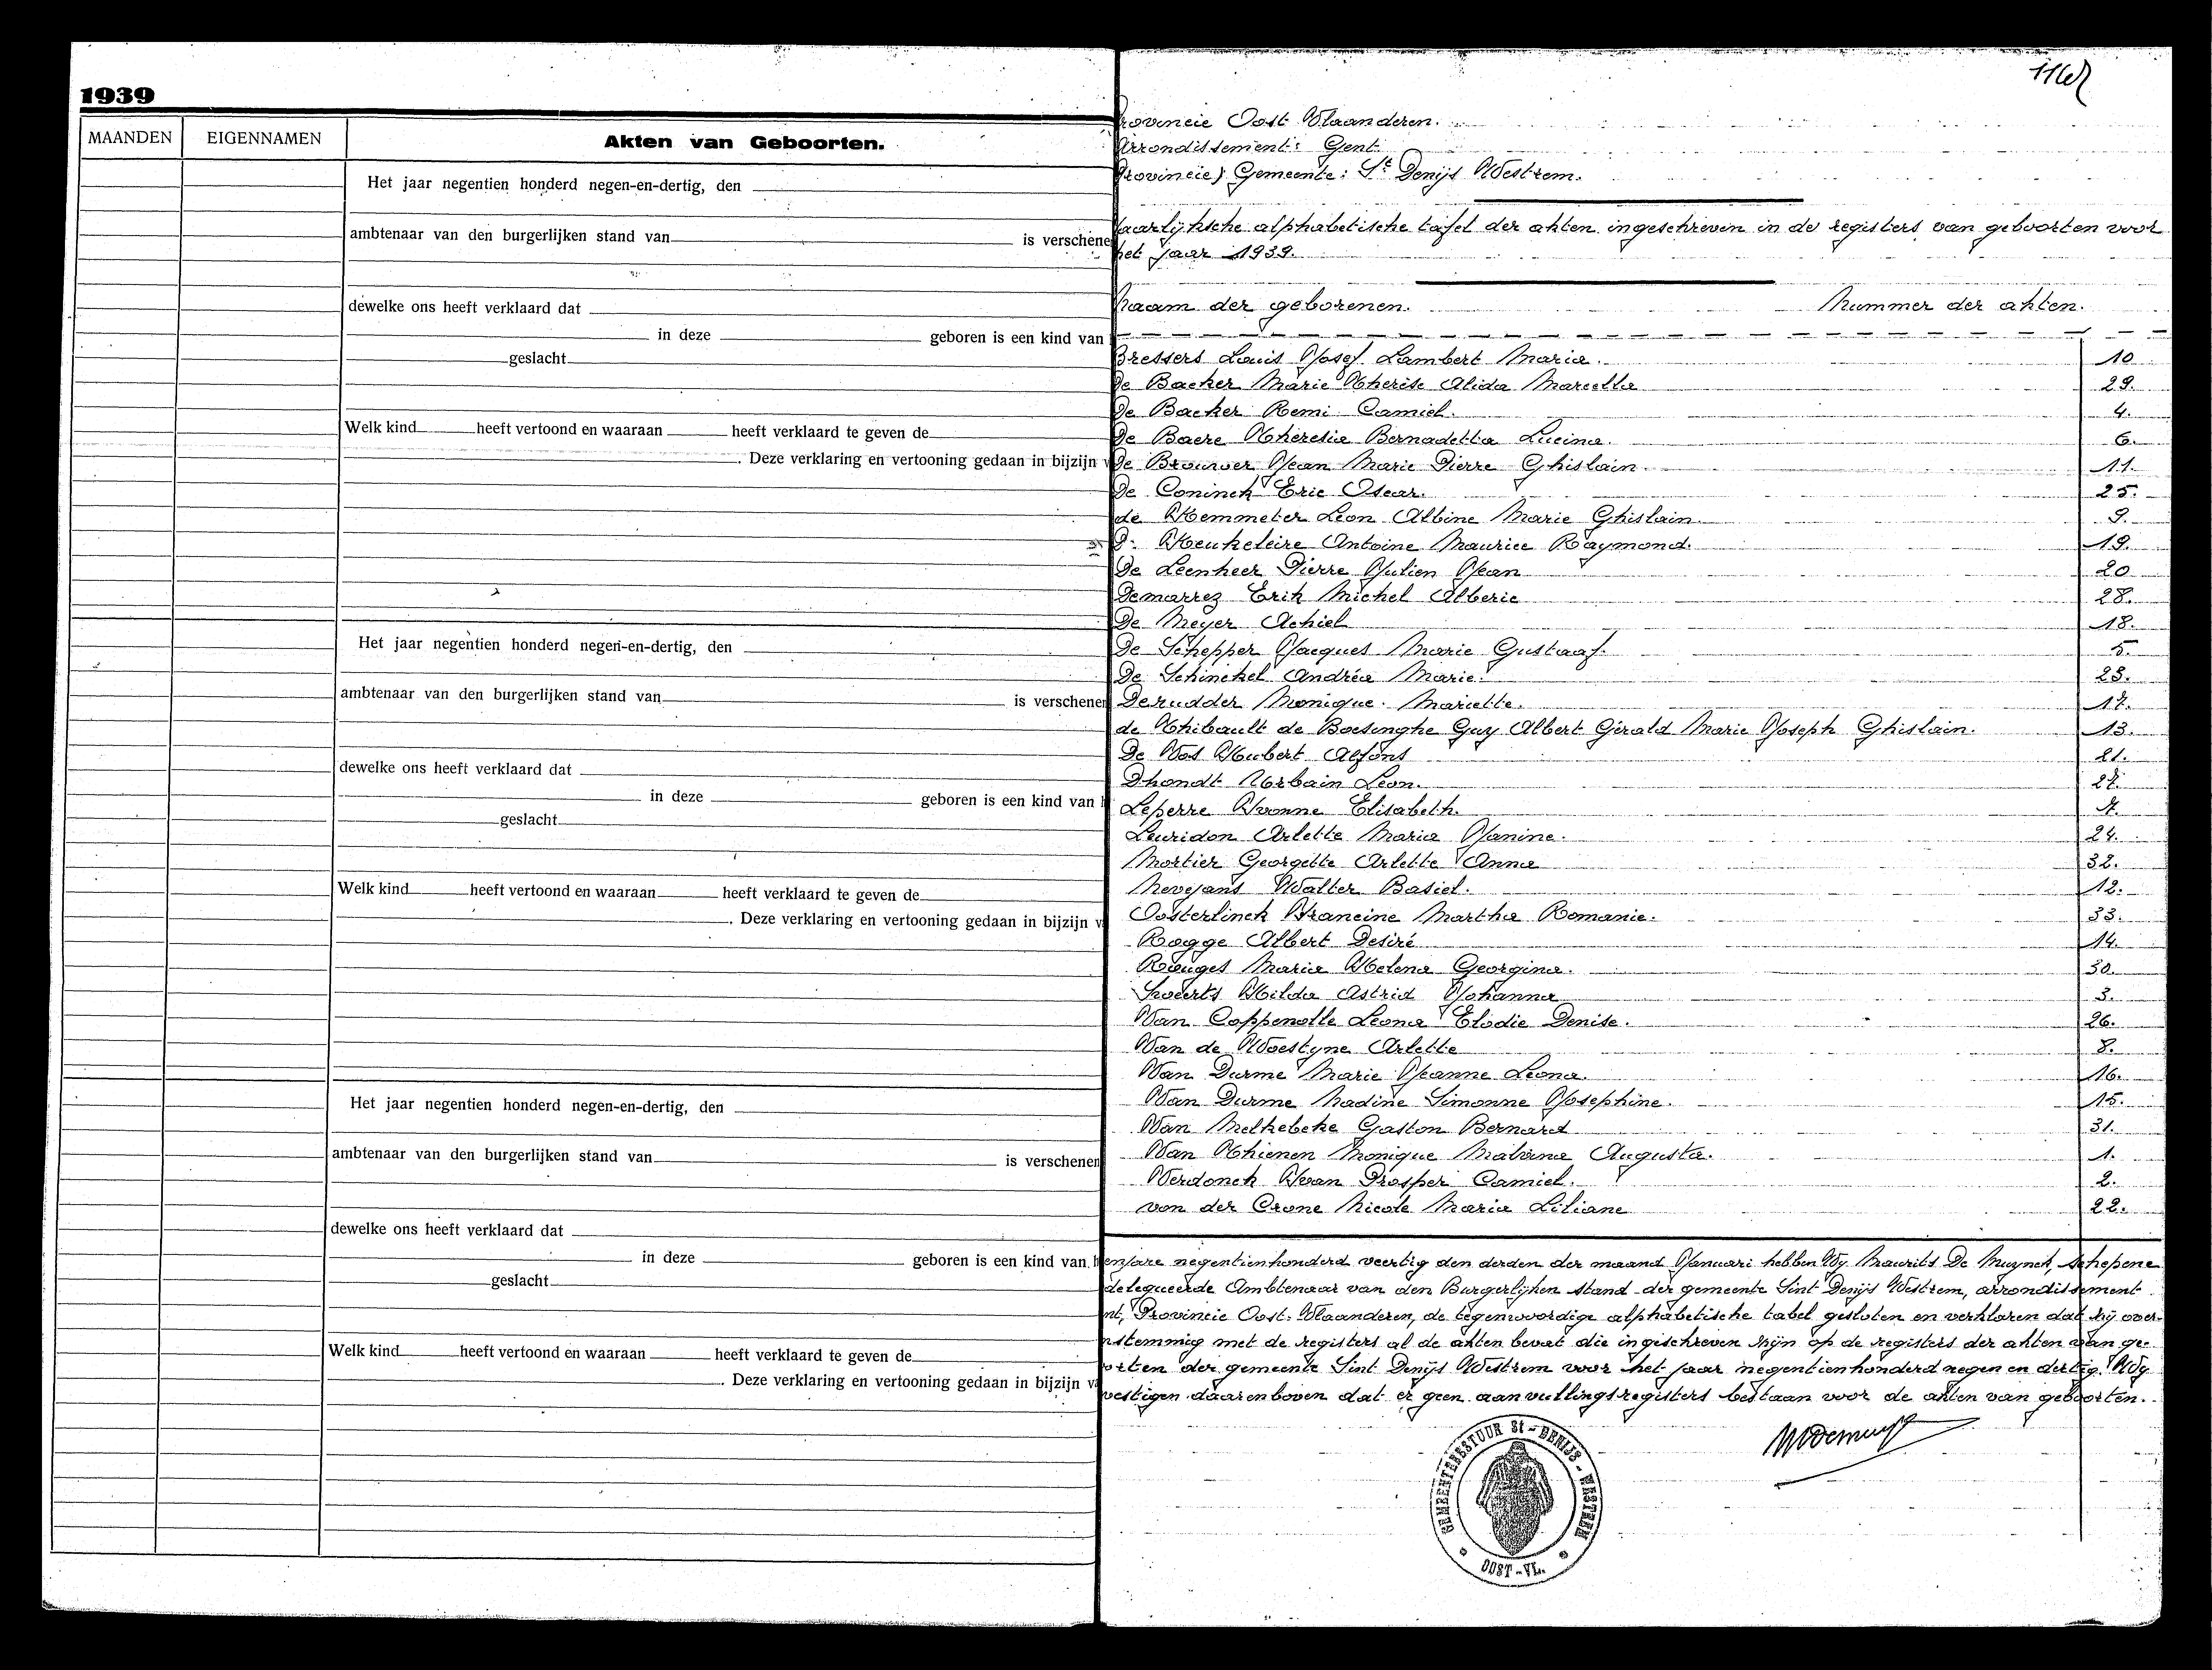 1939
MAANDEN EIGENNAMEN Akten van Geboorten.
Het jaar negentien honderd negen-en-dertig, den
ambtenaar van den burgerlijken stand van is verschene
dewelke ons heeft verklaard dat
in deze geboren is een kind van
geslacht
Welk kind heeft vertoond en waaraan heeft verklaard te geven de
. Deze verklaring en vertooning gedaan in bijzijn v
Het jaar negentien honderd negen-en-dertig, den
ambtenaar van den burgerlijken stand van is verschenen
dewelke ons heeft verklaard dat
in deze geboren is een kind van h
geslacht
Welk kind heeft vertoond en waaraan heeft verklaard te geven de
. Deze verklaring en vertooning gedaan in bijzijn v
Het jaar negentien honderd negen-en-dertig, den
ambtenaar van den burgerlijken stand van is verschenen
dewelke ons heeft verklaard dat
in deze geboren is een kind van h
geslacht
Welk kind heeft vertoond en waaraan heeft verklaard te geven de
. Deze verklaring en vertooning gedaan in bijzijn v
Provincie Oost Vlaanderen.
Arrondissement: Gent.
Provincie) Gemeente: St Denijs Westrem.
Jaarlijksche alphabetische tafel der akten ingeschreven in de registers van geboorten voor
het jaar 1939.
Naam der geborenen. Nummer der akten.
Bressers Louis Josef Lambert Maria. 10
De Backer Marie Therese Alida Marcella 29.
De Backer Remi Camiel. 4.
De Baere Theresia Bernadetta Lucina. 6.
De Brouwer Jean Marie Pierre Ghislain. 11.
De Coninck Eric Oscar. 25.
de Hemmeler Leon Albine Marie Ghislain. 9.
D. Heukeleire Antoine Maurice Raymond. 19.
De Leenheer Pierre Julien Jean 20
Demarrez Erik Michel Alberic 28.
De Meyer Achiel 18.
De Schepper Jacques Marie Gustaaf. 5.
De Schinckel Andréa Marie. 23.
Derudder Monique Mariette. 17.
de Thibault de Boesinghe Guy Albert Gérald Marie Joseph Ghislain. 13.
De Vos Hubert Alfons 21.
Dhondt Urbain Leon. 27.
Leperre Yvonne Elisabeth. 7.
Leuridon Arlette Maria Janine. 24.
Mortier Georgette Arlette Anna 32.
Nevejans Walter Basiel. 12.
Oosterlinck Francine Martha Romanie. 33.
Rogge Albert Desiré 14.
Rouges Maria Helena Georgina. 30.
Sweerts Hilda Astrid Johanna 3.
Van Coppenolle Leona Elodie Denise. 26.
Van de Woestyne Arlette 8.
Van Durme Marie Jeanne Leona. 16.
Van Durme Nadine Simonne Josephine. 15.
Van Melkebeke Gaston Bernard 31.
Van Thienen Monique Malvina Augusta. 1.
Verdonck Yvan Prosper Camiel. 2.
von der Crone Nicole Maria Liliane 22.
en jare negentienhonderd veertig den derden der maand Januari hebben Wy Maurits De Muynck, schepene
delegueerde Ambtenaar van den Burgerlijken stand der gemeente Sint Denijs Westrem, arrondissement
nt, Provincie Oost-Vlaanderen, de tegenwoordige alphabetische tabel gesloten en verklaren dat hij over-
nstemmig met de registers al de akten bevat die ingeschreven zijn op de registers der akten van ge-
orten der gemeente Sint Denijs Westrem voor het jaar negentienhonderd negen en dertig. Wy
vestigen daarenboven dat er geen aanvullingsregisters bestaan voor de akten van geboorten.
GEMEENTEBESTUUR St-DENIJS-WESTREM
OOST-VL.